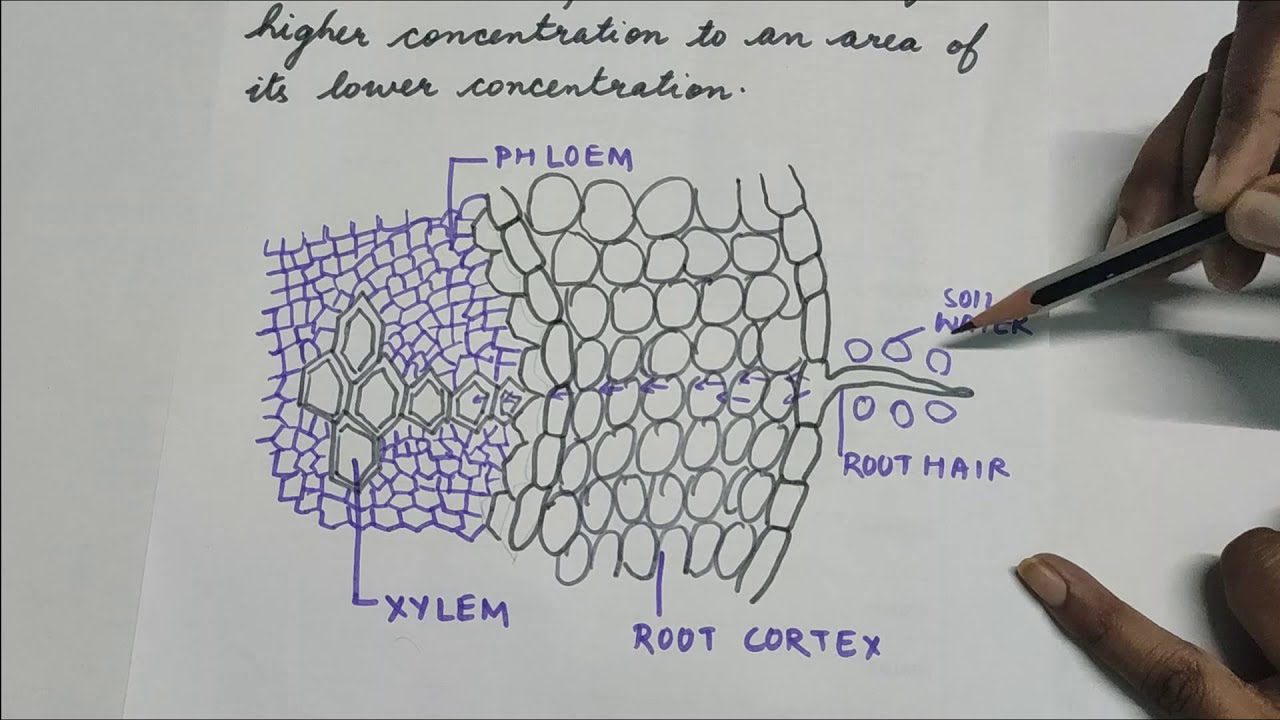 higher concentration to an area of
its lower concentration.
PHLOEM
SOIL
WATER
ROOT HAIR
XYLEM
ROOT CORTEX